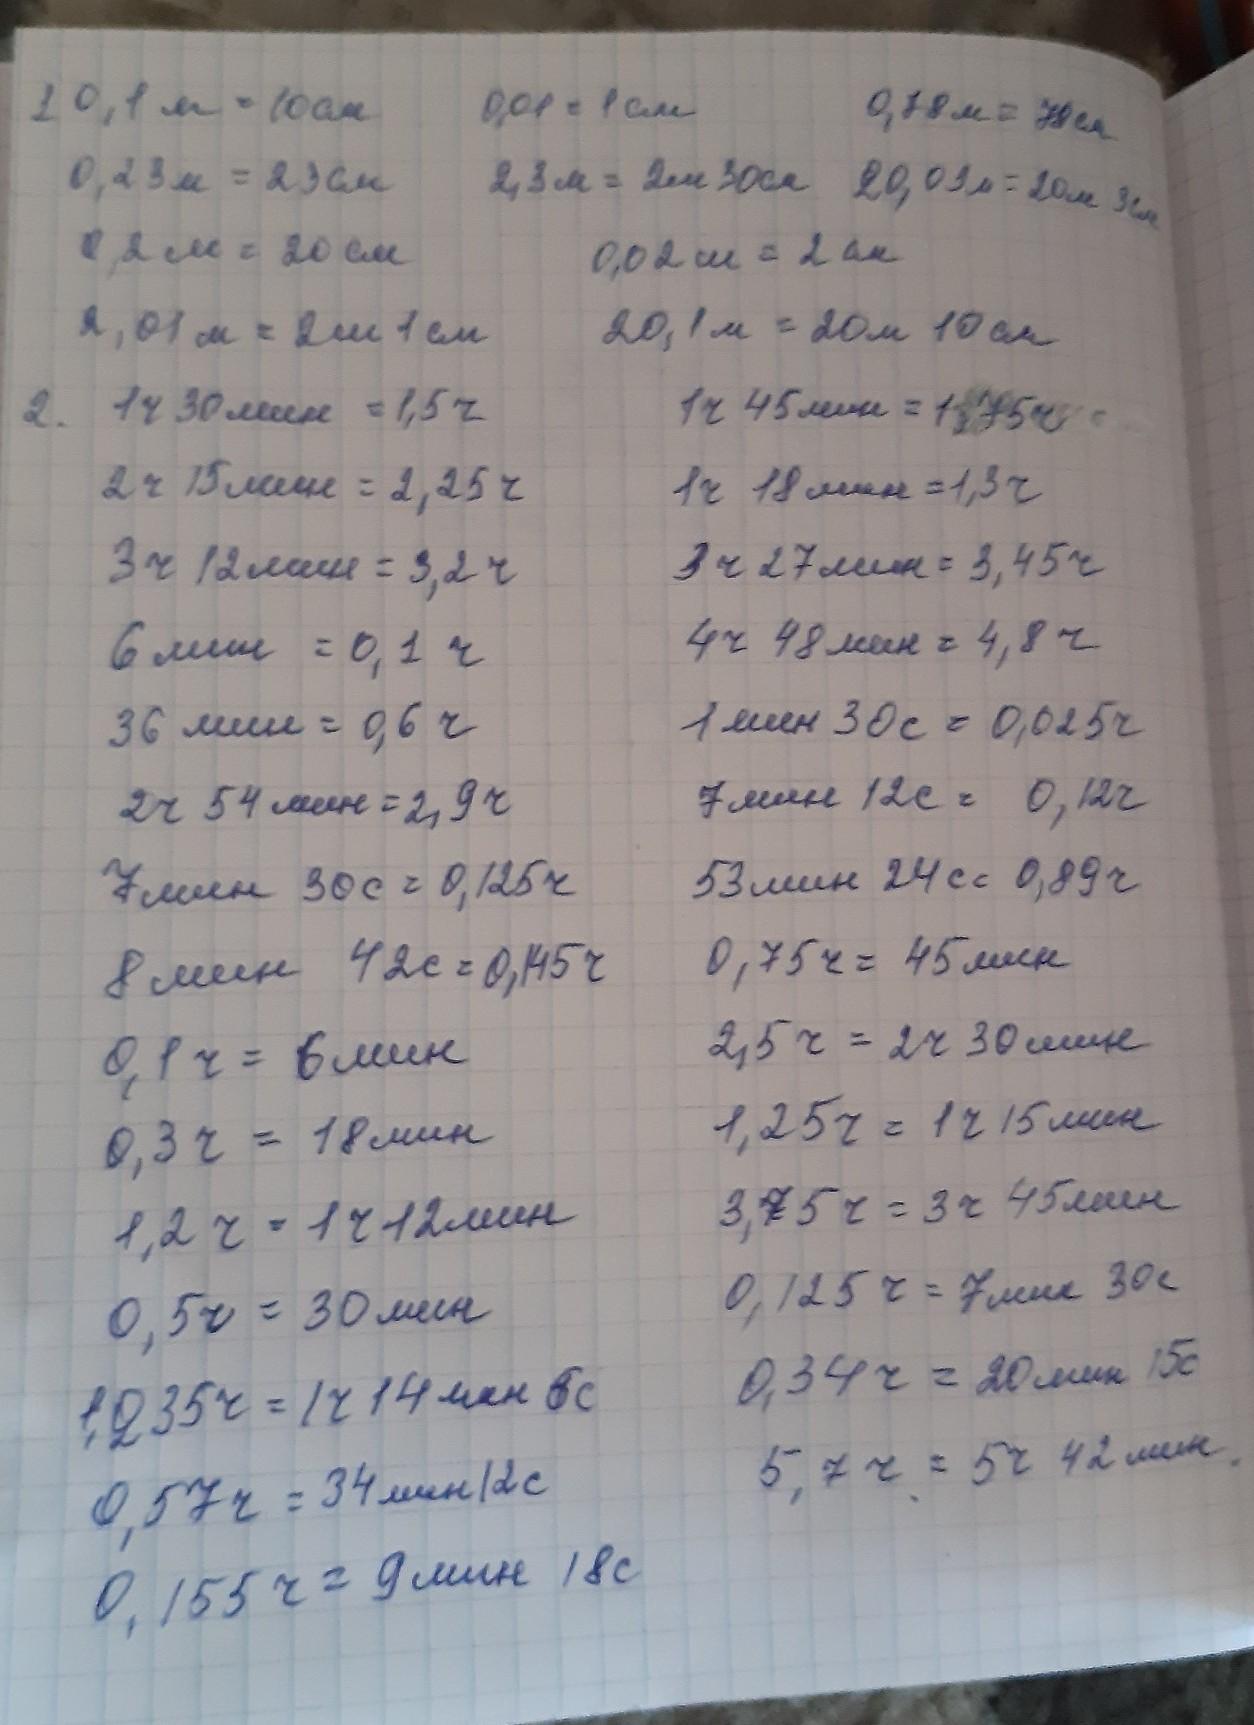 1 0,1 м = 10 см 0,01 = 1 см 0,78 м = 78 см
0,23 м = 23 см 2,3 м = 2 м 30 см 20,03 м = 20 м 3 см
0,2 м = 20 см 0,02 м = 2 см
2,01 м = 2 м 1 см 20,1 м = 20 м 10 см
2. 1ч 30 мин = 1,5 ч 1ч 45 мин = 1,75 ч
2ч 15 мин = 2,25 ч 1ч 18 мин = 1,3 ч
3ч 12 мин = 3,2 ч 3ч 27 мин = 3,45 ч
6 мин = 0,1 ч 4ч 48 мин = 4,8 ч
36 мин = 0,6 ч 1 мин 30 с = 0,025 ч
2ч 54 мин = 2,9 ч 7 мин 12 с = 0,12 ч
7 мин 30 с = 0,125 ч 53 мин 24 с = 0,89 ч
8 мин 42 с = 0,145 ч 0,75 ч = 45 мин
0,1 ч = 6 мин 2,5 ч = 2ч 30 мин
0,3 ч = 18 мин 1,25 ч = 1ч 15 мин
1,2 ч = 1ч 12 мин 3,75 ч = 3ч 45 мин
0,5 ч = 30 мин 0,125 ч = 7 мин 30 с
= 1ч 14 мин 6 с 0,34 ч = 20 мин 15 с
0,57 ч = 34 мин 12 с 5,7 ч = 5ч 42 мин.
0,155 ч = 9 мин 18 с